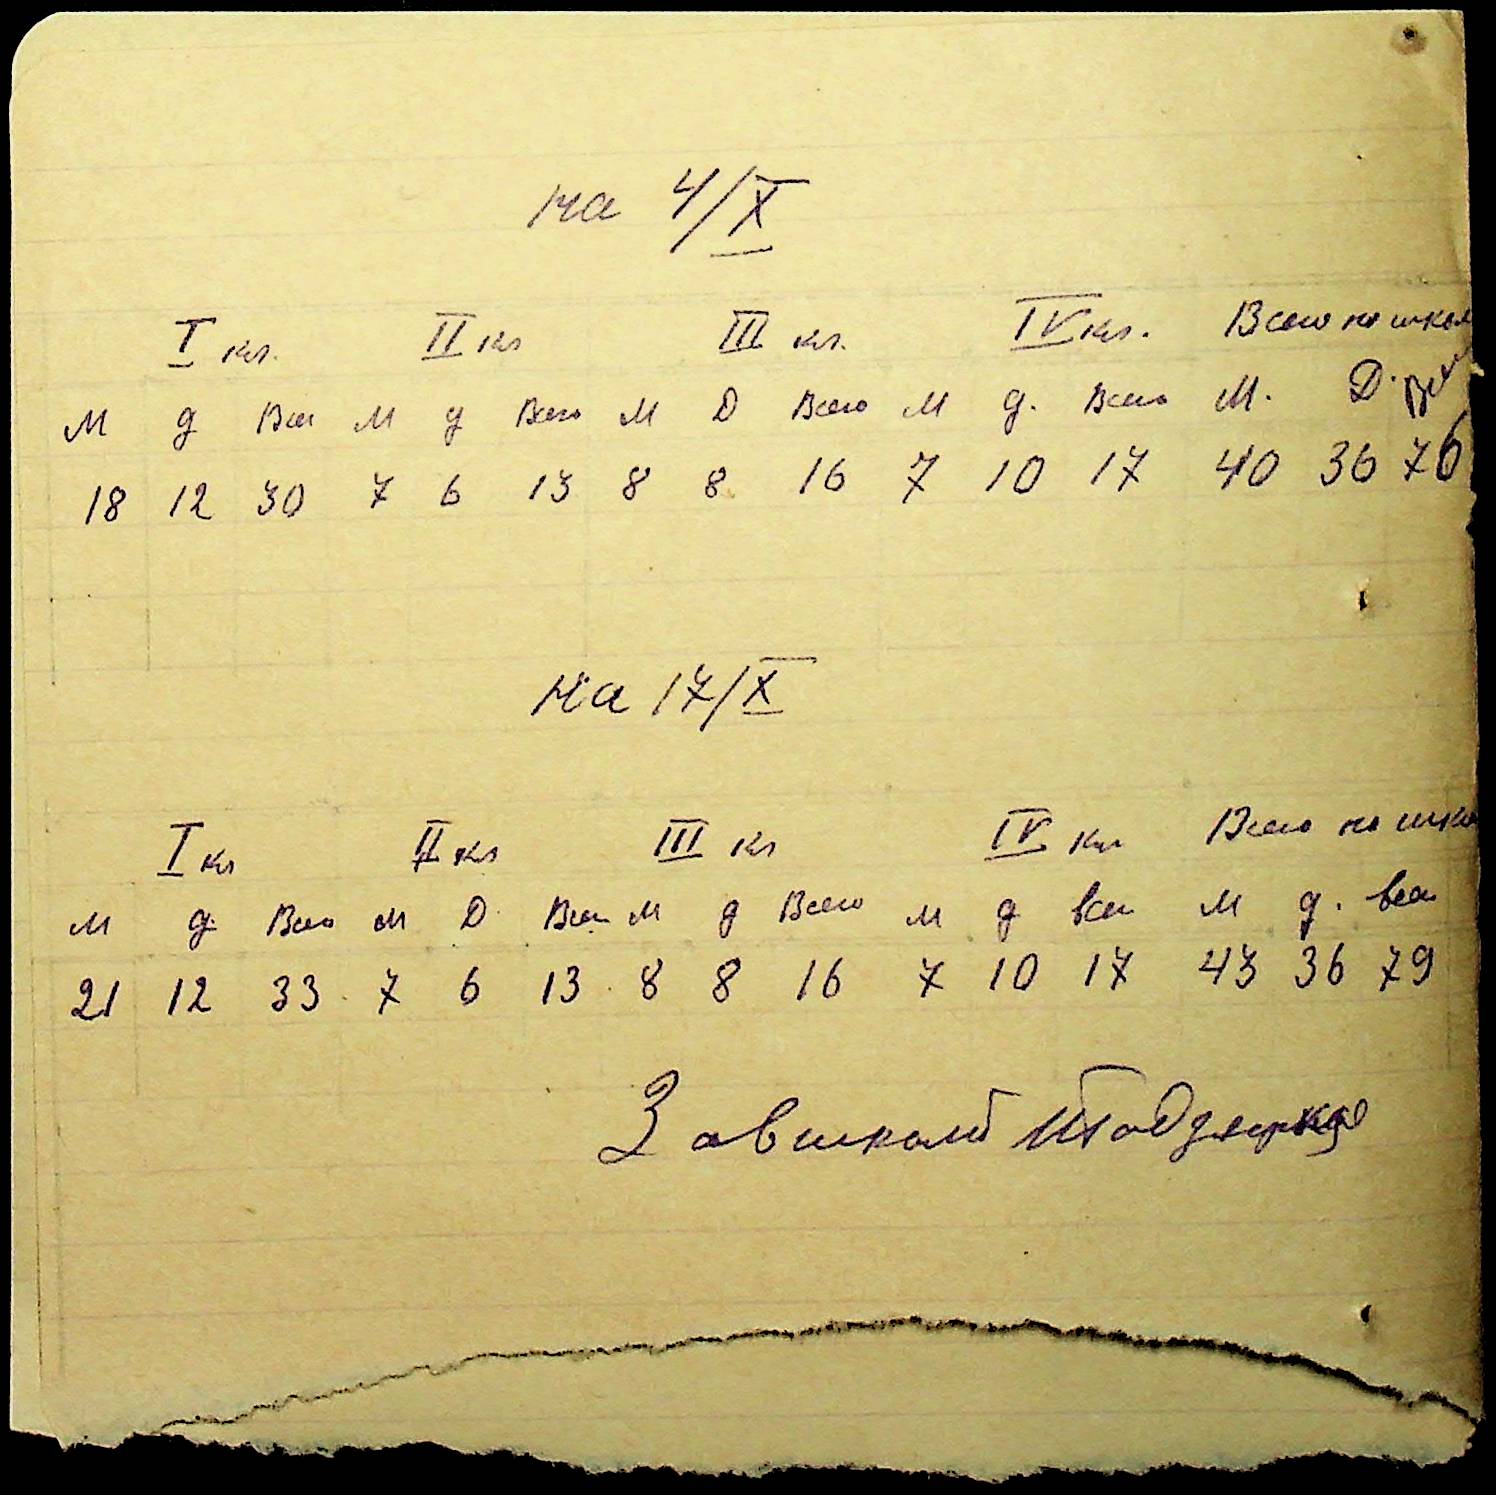 на 4/X
I кл. II кл III кл. IV кл. Всего по школ
М д Всег М д Всего М Д Всего М д. Всего М. Д. Всего
18 12 30 7 6 13 8 8 16 7 10 17 40 36 76
на 17/X
I кл II кл III кл IV кл Всего по шко
М д. Всего М Д Всего М д Всего М д всег М д. всег
21 12 33 7 6 13 8 8 16 7 10 17 43 36 79
Зав школой